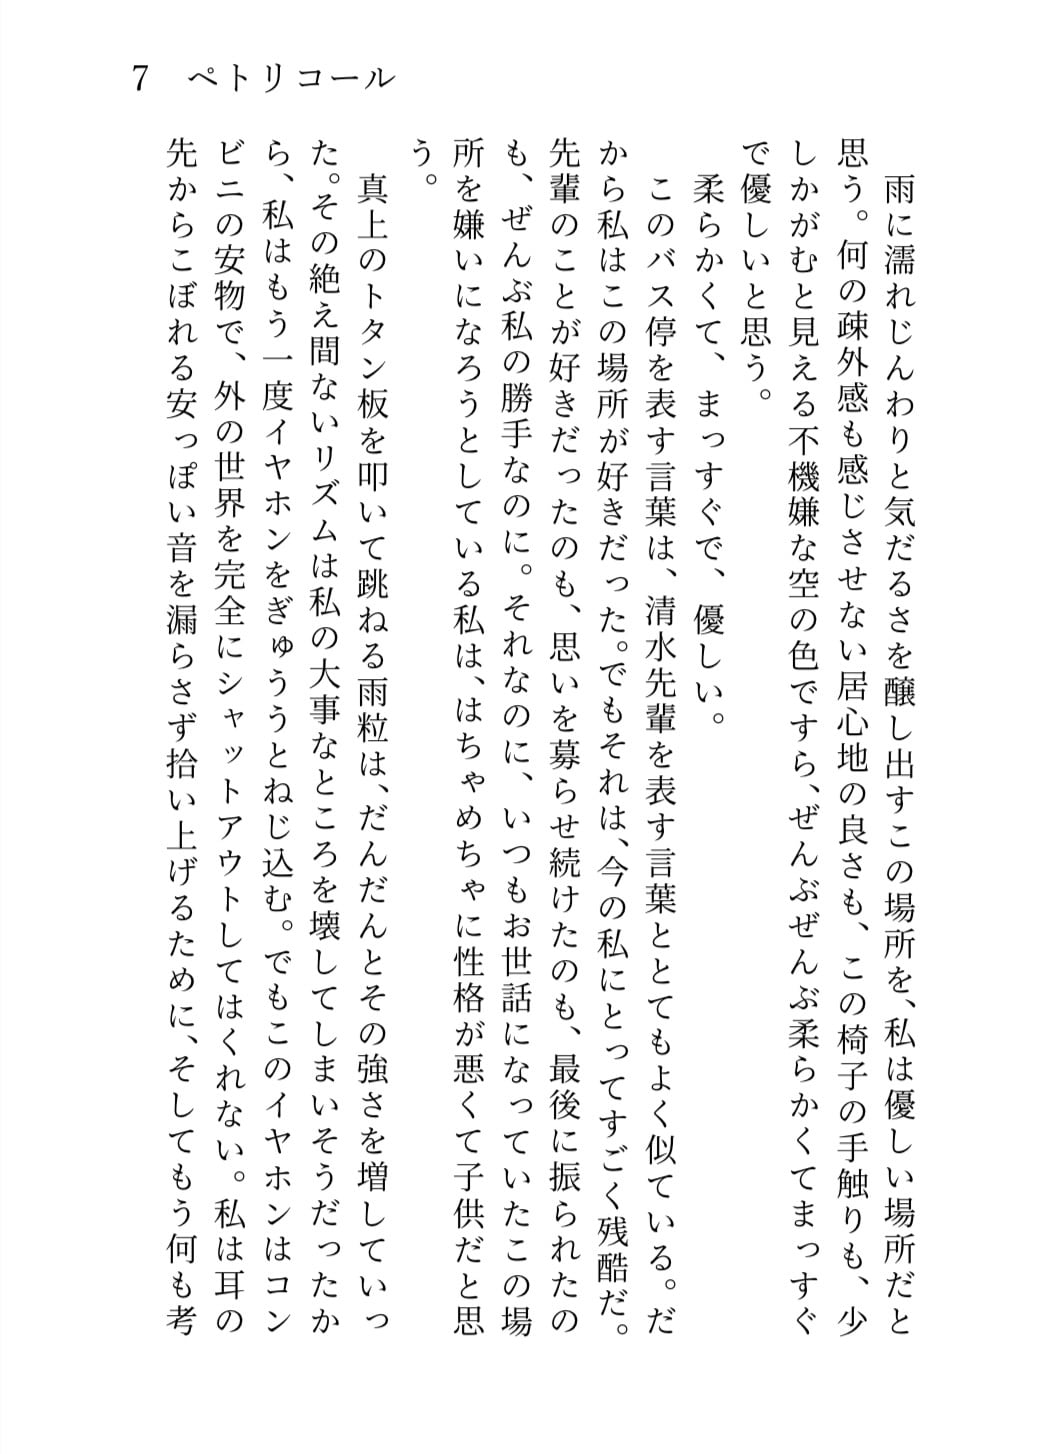 7　ペトリコール
　雨に濡れじんわりと気だるさを醸し出すこの場所を、私は優しい場所だと
思う。何の疎外感も感じさせない居心地の良さも、この椅子の手触りも、少
しかがむと見える不機嫌な空の色ですら、ぜんぶぜんぶ柔らかくてまっすぐ
で優しいと思う。
　柔らかくて、まっすぐで、優しい。
　このバス停を表す言葉は、清水先輩を表す言葉ととてもよく似ている。だ
から私はこの場所が好きだった。でもそれは、今の私にとってすごく残酷だ。
先輩のことが好きだったのも、思いを募らせ続けたのも、最後に振られたの
も、ぜんぶ私の勝手なのに。それなのに、いつもお世話になっていたこの場
所を嫌いになろうとしている私は、はちゃめちゃに性格が悪くて子供だと思
う。
　真上のトタン板を叩いて跳ねる雨粒は、だんだんとその強さを増していっ
た。その絶え間ないリズムは私の大事なところを壊してしまいそうだったか
ら、私はもう一度イヤホンをぎゅううとねじ込む。でもこのイヤホンはコン
ビニの安物で、外の世界を完全にシャットアウトしてはくれない。私は耳の
先からこぼれる安っぽい音を漏らさず拾い上げるために、そしてもう何も考